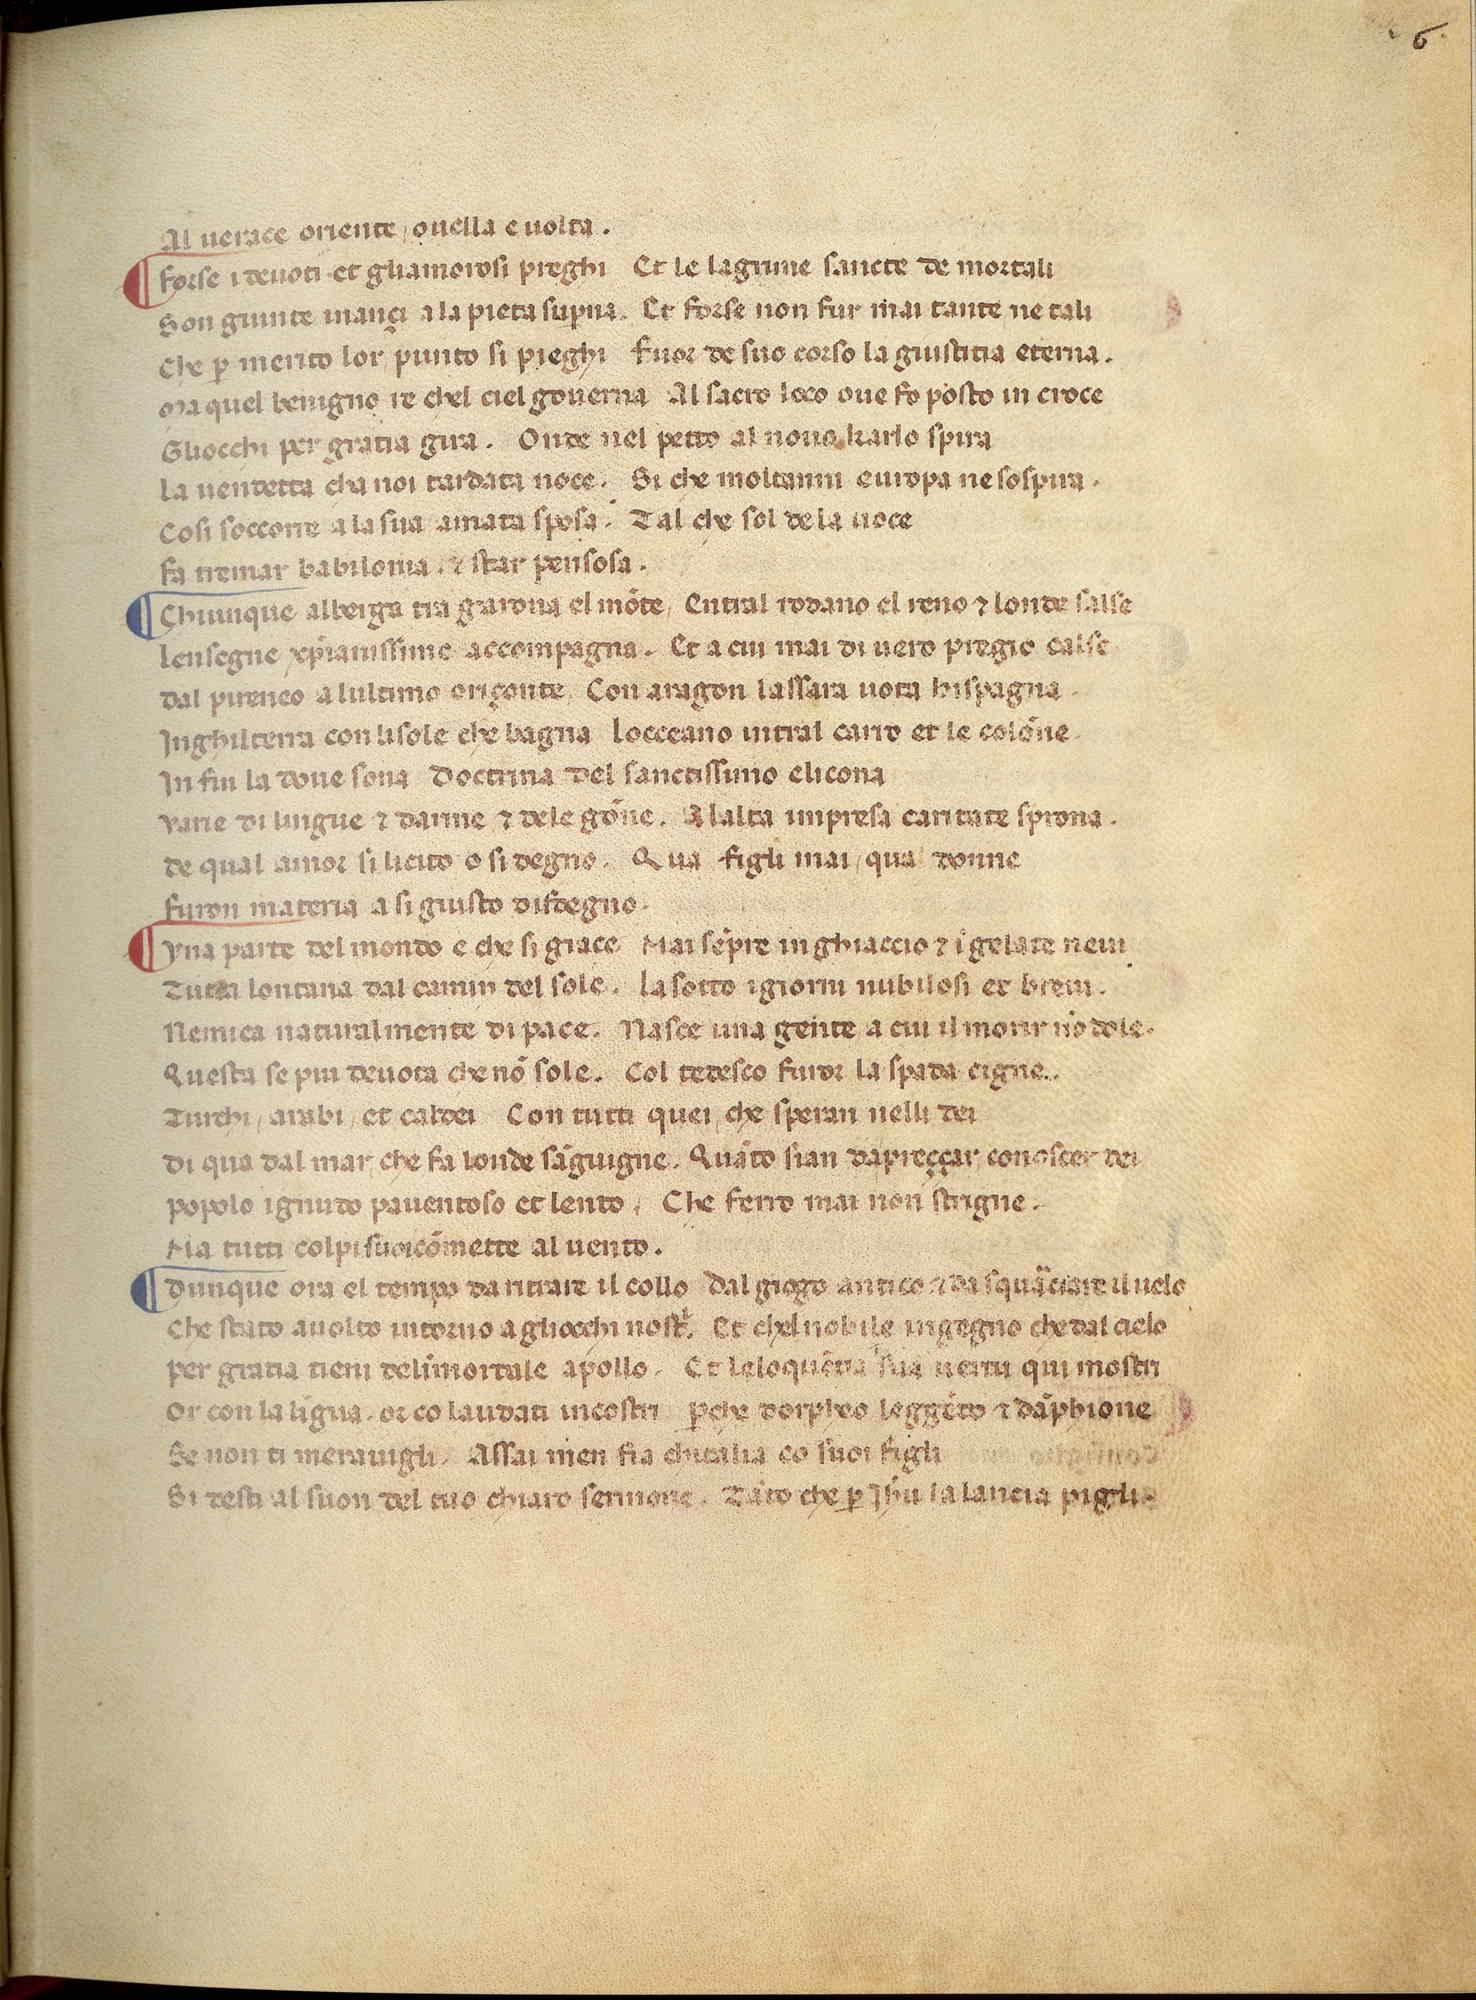 6
Al uerace oriente / ouella e uolta .
Forse i deuoti et gliamorosi preghi Et le lagrime sancte de mortali
Son giunte inançi a la pieta supna . Et forse non fur mai tante ne tali
Che p merito lor / punto si pieghi Fuor de suo corso la giustitia eterna .
Ma quel benigno re chel ciel gouerna Al sacro loco oue fo posto in croce
Gliocchi per gratia gira . Onde nel petto al nouo karlo spira
La uendetta cha noi tardata noce . Si che moltanni europa ne sospira .
Cosi soccorre a la sua amata sposa . Tal che sol de la uoce
Fa tremar babilonia . ⁊ star pensosa .
Chiunque alberga tra garona el mõte / Entral rodano el reno ⁊ londe salse
Lensegne xp̃ianissime accompagna . Et a cui mai di uero pregio calse
Dal pireneo a lultimo oriçonte / Con aragon lassara uota hispagna .
Inghilterra con lisole che bagna Locceano intral carro et le colõne .
In fin la doue sona Doctrina del sanctissimo elicona
Varie di lingue ⁊ darme ⁊ dele gõne . A lalta impresa caritate sprona .
De qual amor si licito o si degno . Qua figli mai / qua donne
Furon materia a si giusto disdegno .
Vna parte del mondo e che si giace Mai sẽpre in ghiaccio ⁊ ĩ gelate neui
Tutta lontana dal camin del sole . La sotto i giorni nubilosi et breui .
Nemica naturalmente di pace . Nasce una gente a cui il morir nõ dole .
Questa se piu deuota che nõ sole . Col tedesco furor la spada cigne .
Turchi / arabi / et caldei Con tutti quei / che speran nelli dei
Di qua dal mar che fa londe sãguigne . Quãto sian dapreççar conoscer dei
Popolo ignudo pauentoso et lento / Che ferro mai non strigne .
Ma tutti colpi suoi cõmette al uento .
Dunque ora el tempo da ritrare il collo Dal giogo antico ⁊ da squãciare il uelo
Che stato auolto intorno a gliocchi nostri . Et chel nobile ingegno che dal cielo
Per gratia tieni delĩmortale apollo . Et leloquẽtia sua uertu qui mostri
Or con la lĩgua . or co laudati incostri Pche dorpheo leggẽto ⁊ dãphione
Se non ti merauigli . Assai men fia chitalia co suoi figli
Si desti al suon del tuo chiaro sermone . Tãto che p Ihu la lancia pigli .